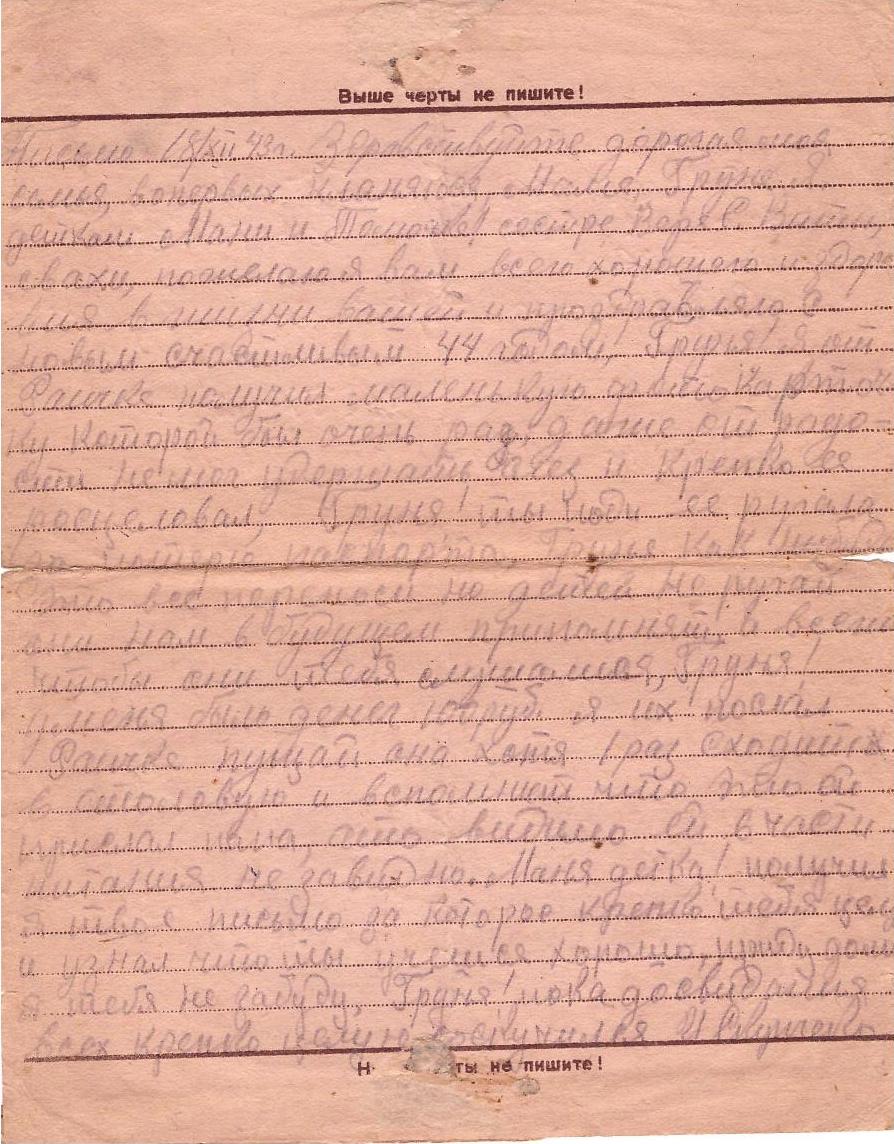 Выше черты не пишите!
Письмо 18/XII 43 г. Здравствуйте дорогая моя
семья, вопервых кланяюсь Мама, Груне Я
деткам Мани и Томочки сестре Варе С Витей,
свахи, пожелаю я вам всего хорошего и здоро
вия в жизни вашей и проздравляю с
новым счастливым 44 годом, Груня! Я от
Раички получил маленькую фото карточ
ку которой был очень рад, даже от радо-
сти не мог удержать слез и крепко ее
росцеловал, Груня! ты ее ругала
за потерю паспорта, Груня как нибудь
это все переноси но детей не ругай
они нам в будущем припомнят, и всего
чтобы они тебя слушались, Груня!
уменя было денег руб я их послал
Раичке пущай она хотя 1 раз сходит
в столовую и вспомнит что это ей
прислал папа, ето видимо ей в части
питания не завидно. Маня детка! получил
я твоя письмо за которое крепко тебя целу
и узнал что ты учишся хорошо, приду домо
я тебя не забуду, Груня! пока досвидания
всех крепко целую соскучился И
Н ты не пишите!